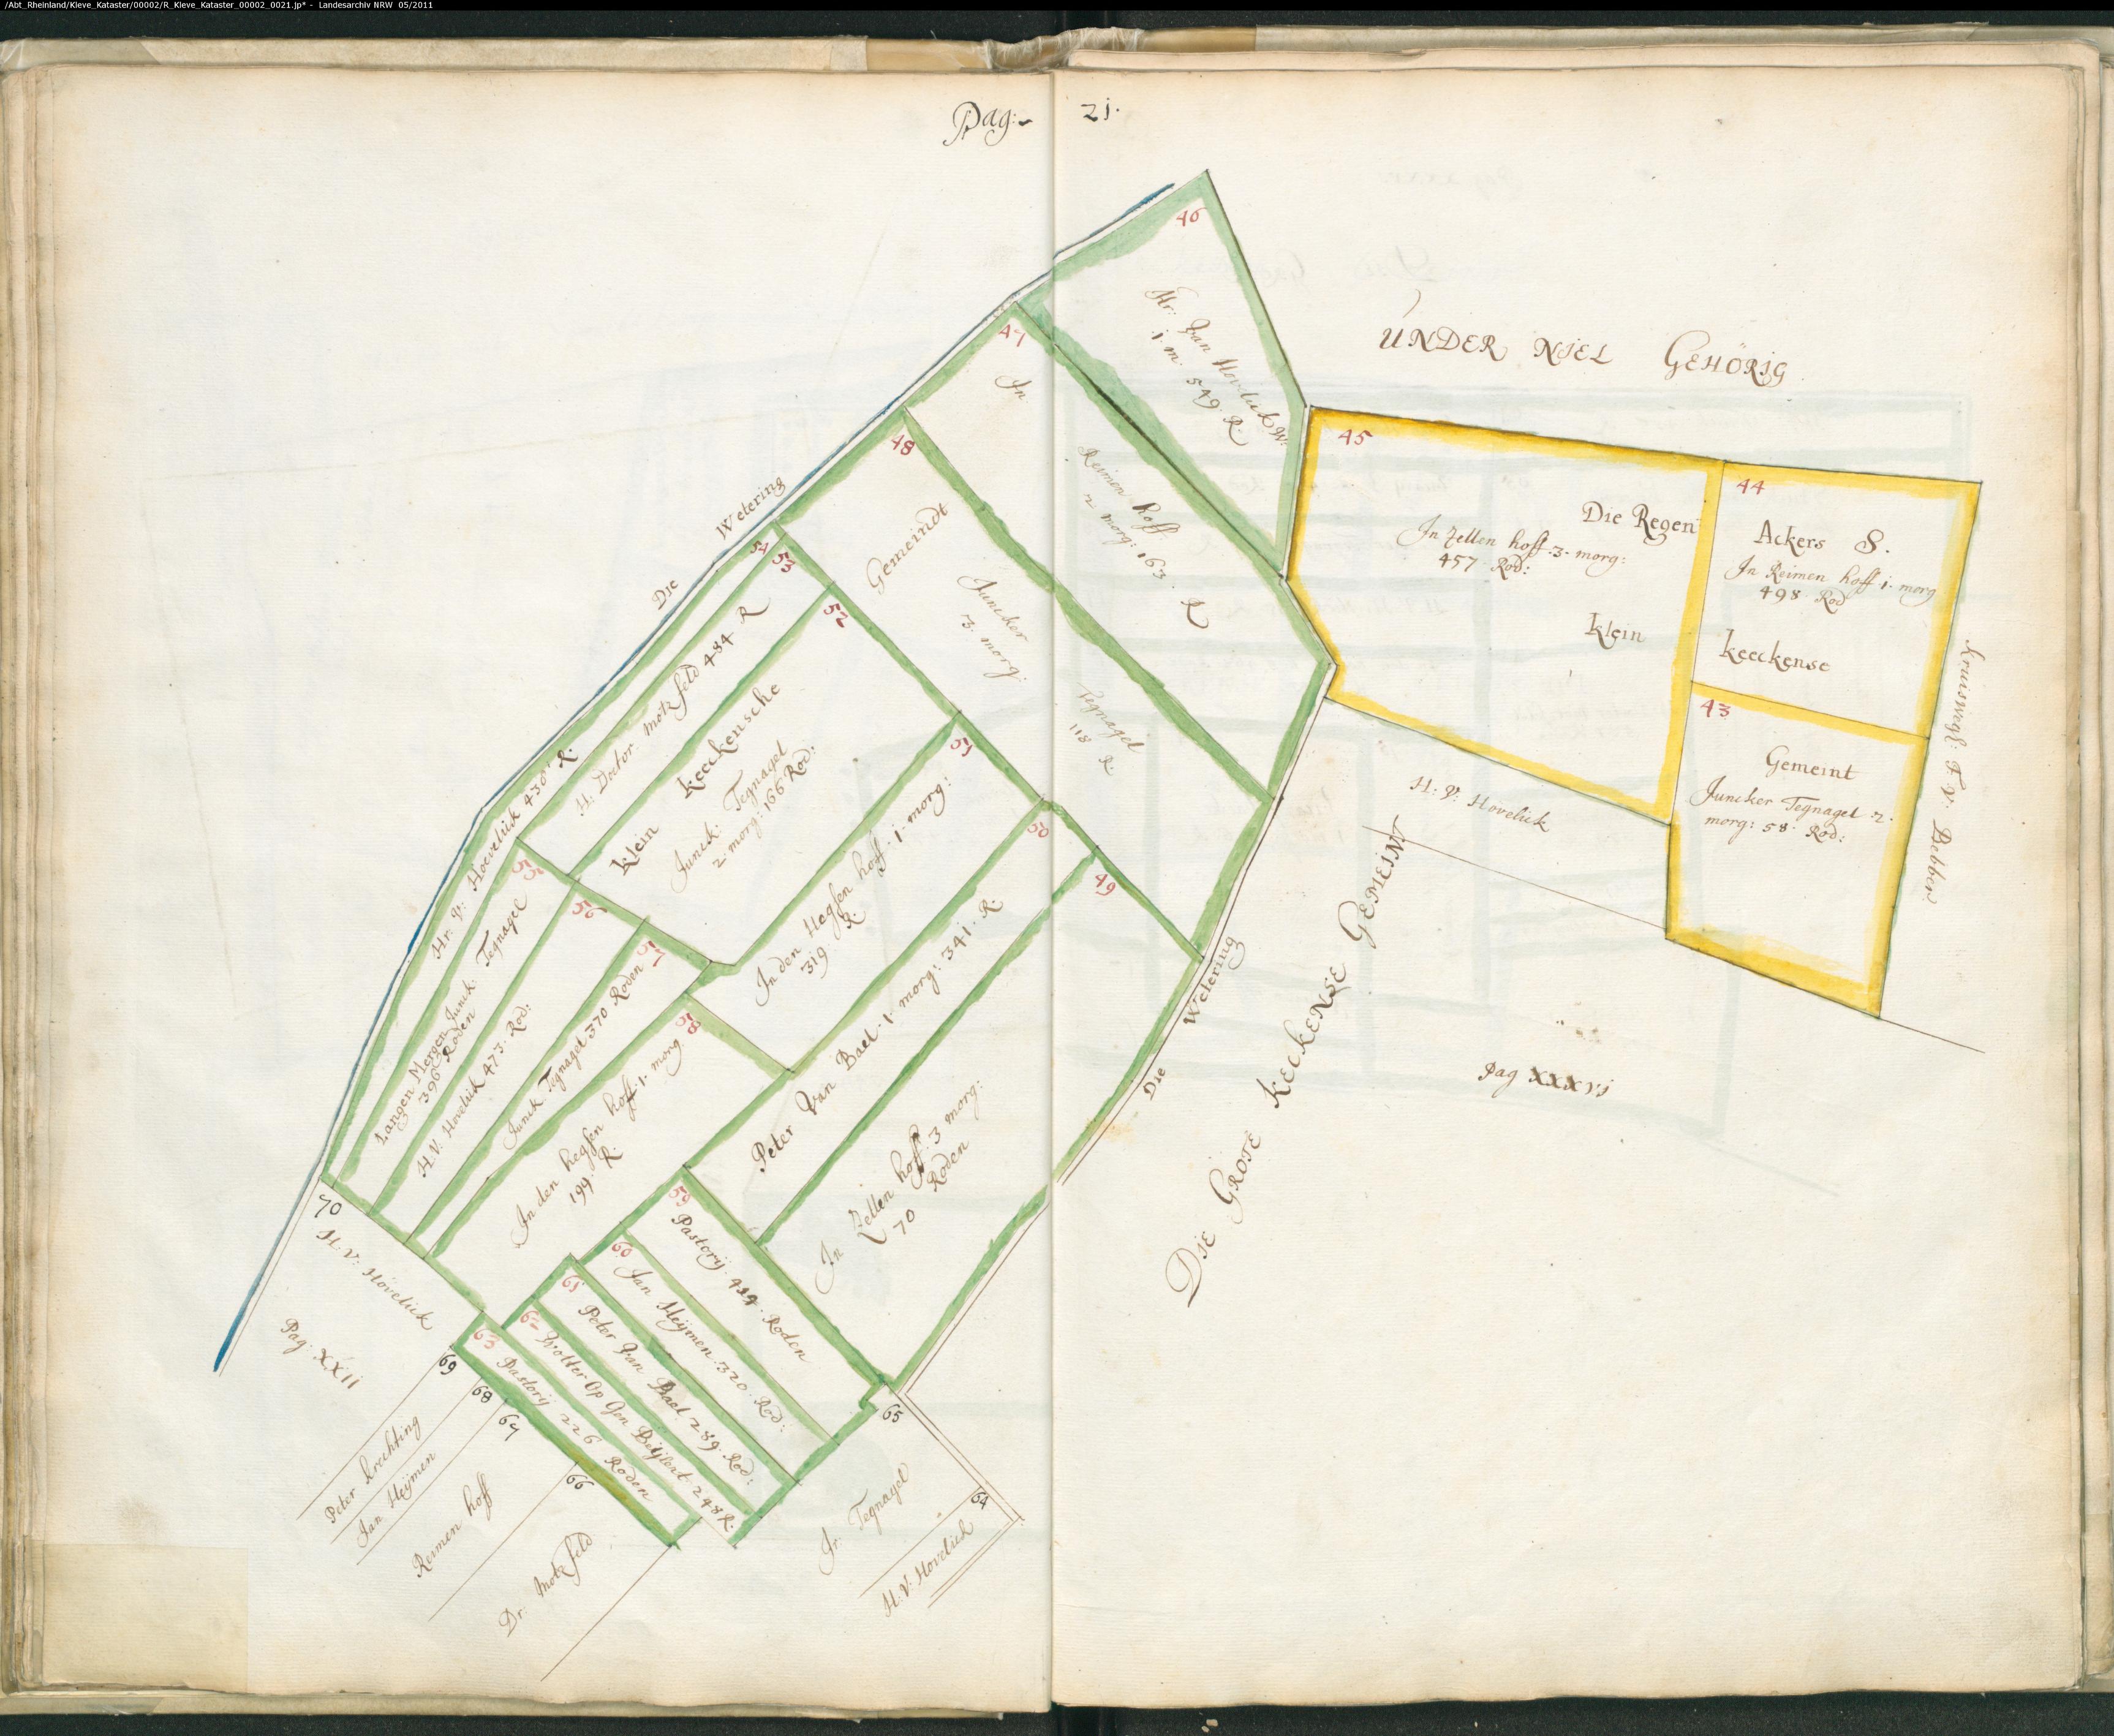 /Abt_Rheinland/Kleve_Kataster/00002/R_Kleve_Kataster_00002_0021.jp* - Landesarchiv NRW 05/2011
Pag: 21.
46
Hr: Van Hovelick W:
1 m. 549. R.
UNDER NIEL GEHÖRIG
47
In
Reimen hoff
2 morg: 163. R
48
Gemeindt
Juncker
3. morg.
Tegnagel
118 R.
45
Die Regen
In Zellen hoff. 3. morg:
457 Rod:
klein
44
Ackers S.
In Reimen hoff. 1. morg
498 Rod
keeckense
43
Gemeint
Juncker Tegnagel 2.
morg: 58. Rod:
H: V: Hovelick
Die Wetering
54
Hr. V: Hoevelick 430 R.
53
H: Doctor Motzfeld 484 R
52
klein keeckensche
Junck: Tegnagel
2 morg: 166 Rod:
51
In den Hegsen hoff. 1. morg:
319 R.
50
Peter Van Bael. 1 morg: 341. R.
49
In Zellen hoff: 3 morg:
70 Roden
55
Langen Mergen Junck. Tegnagel
396 Roden
56
H. V. Hovelick 473. Rod:
57
Junck Tegnagel 370 Roden
58
In den hegsen hoff. 1. morg
199 R
59
Pastorij. 414. Roden
60
Jan Heijmen 320. Rod:
61
Peter Van Bael 289. Rod:
62
Wolter Op Gen Beijlert 248 R.
63
Pastorij 226 Roden
Die Wetering
DIE GROTE KEECKENSE GEMEINT
Pag XXXVI
70
H. V: Hovelick
Pag: XXII
69
Peter
68
Jan Heijmen
67
Reimen hoff
66
Dr. Motzfeld
65
Jr. Tegnagel
64
H: V: Hovelick